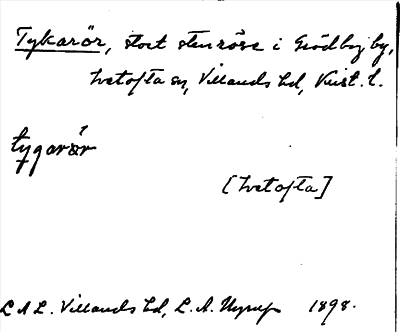 Tykarör, stort stenröse i Grödby by,
Ivetofta sn, Villands hd, Krist. l.
tygarör
[Ivetofta]
LAL. Villands hd, L. A. Nyrup 1898.